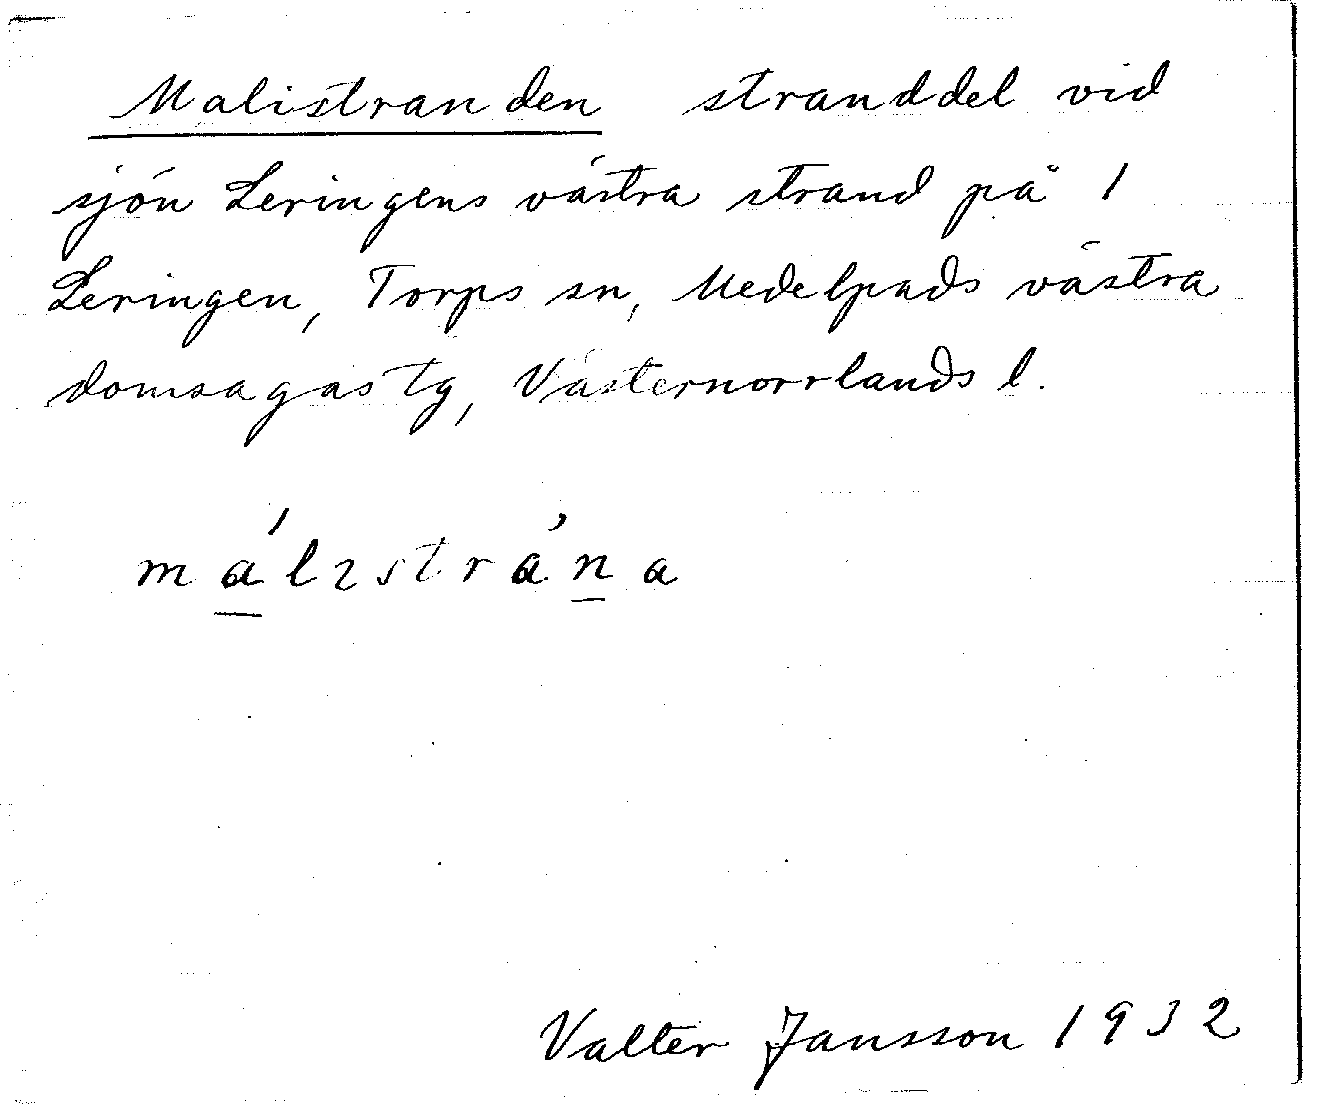 Malistranden stranddel vid
sjön Leringens västra strand på 1
Leringen, Torps sn, Medelpads västra
domsagas tg, Västernorrlands l.
málıstràna
Valter Jansson 1932